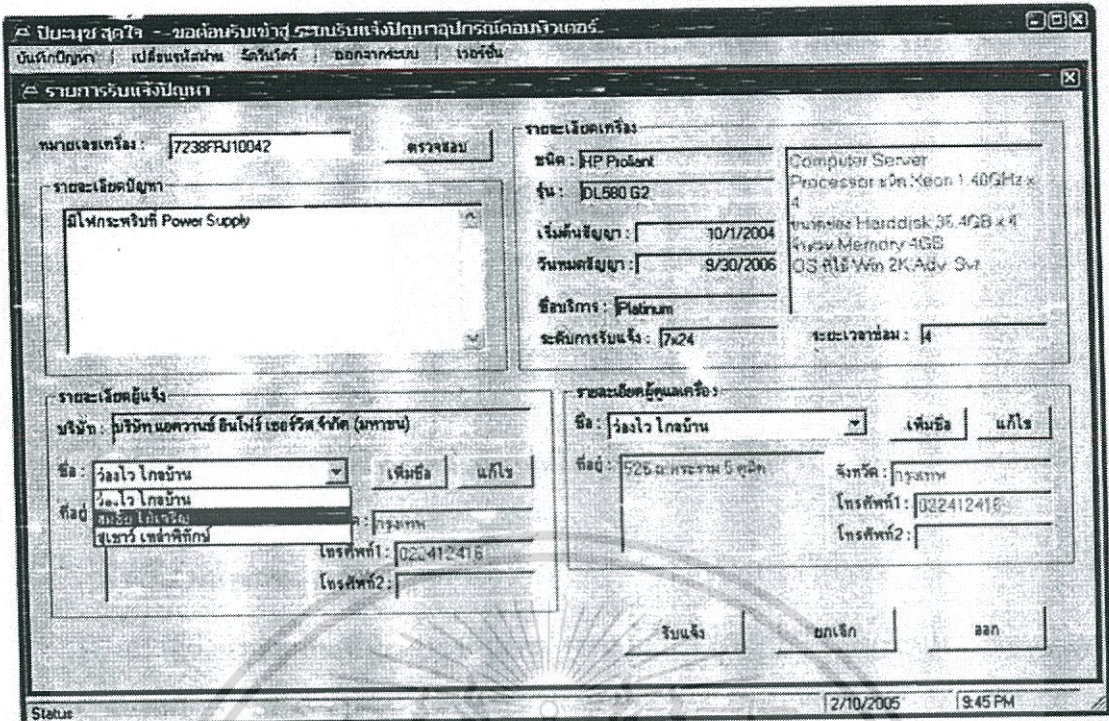 ปิยะนุช สุดใจ - - ขอต้อนรับเข้าสู่ ระบบรับแจ้งปัญหาอุปกรณ์คอมพิวเตอร์
บันทึกปัญหา | เปลี่ยนรหัสผ่าน จัดวินโดว์ | ออกจากระบบ | เวอร์ชั่น
รายการรับแจ้งปัญหา
หมายเลขเครื่อง : 7238FRJ10042 ตรวจสอบ
รายละเอียดปัญหา
มีไฟกระพริบที่ Power Supply
รายละเอียดเครื่อง
ชนิด : HP Proliant
รุ่น : DL580 G2
เริ่มต้นสัญญา : 10/1/2004
วันหมดสัญญา : 9/30/2006
ชื่อบริการ : Platinum
ระดับการรับแจ้ง : 7x24
ระยะเวลาซ่อม : 4
Computer Server
Processor ชนิด Xeon 1.40GHz x
4
ขนาดของ Harddisk 36.4GB x 4
จำนวน Memory 4GB
OS ที่ใช้ Win 2K Adv. Svr
รายละเอียดผู้แจ้ง
บริษัท : บริษัท แอดวานซ์ อินโฟร์ เซอร์วิส จำกัด (มหาชน)
ชื่อ : ว่องไว ไกลบ้าน เพิ่มชื่อ แก้ไข
ว่องไว ไกลบ้าน
สุเชาว์ เหล่าพิทักษ์
ที่อยู่
กรุงเทพ
โทรศัพท์1 : 022412416
โทรศัพท์2 :
รายละเอียดผู้ดูแลเครื่อง
ชื่อ : ว่องไว ไกลบ้าน เพิ่มชื่อ แก้ไข
ที่อยู่ : 526 ถ.พระราม 5 ดุสิต
จังหวัด : กรุงเทพ
โทรศัพท์1 : 022412416
โทรศัพท์2 :
รับแจ้ง ยกเลิก ออก
Status 2/10/2005 9:45 PM